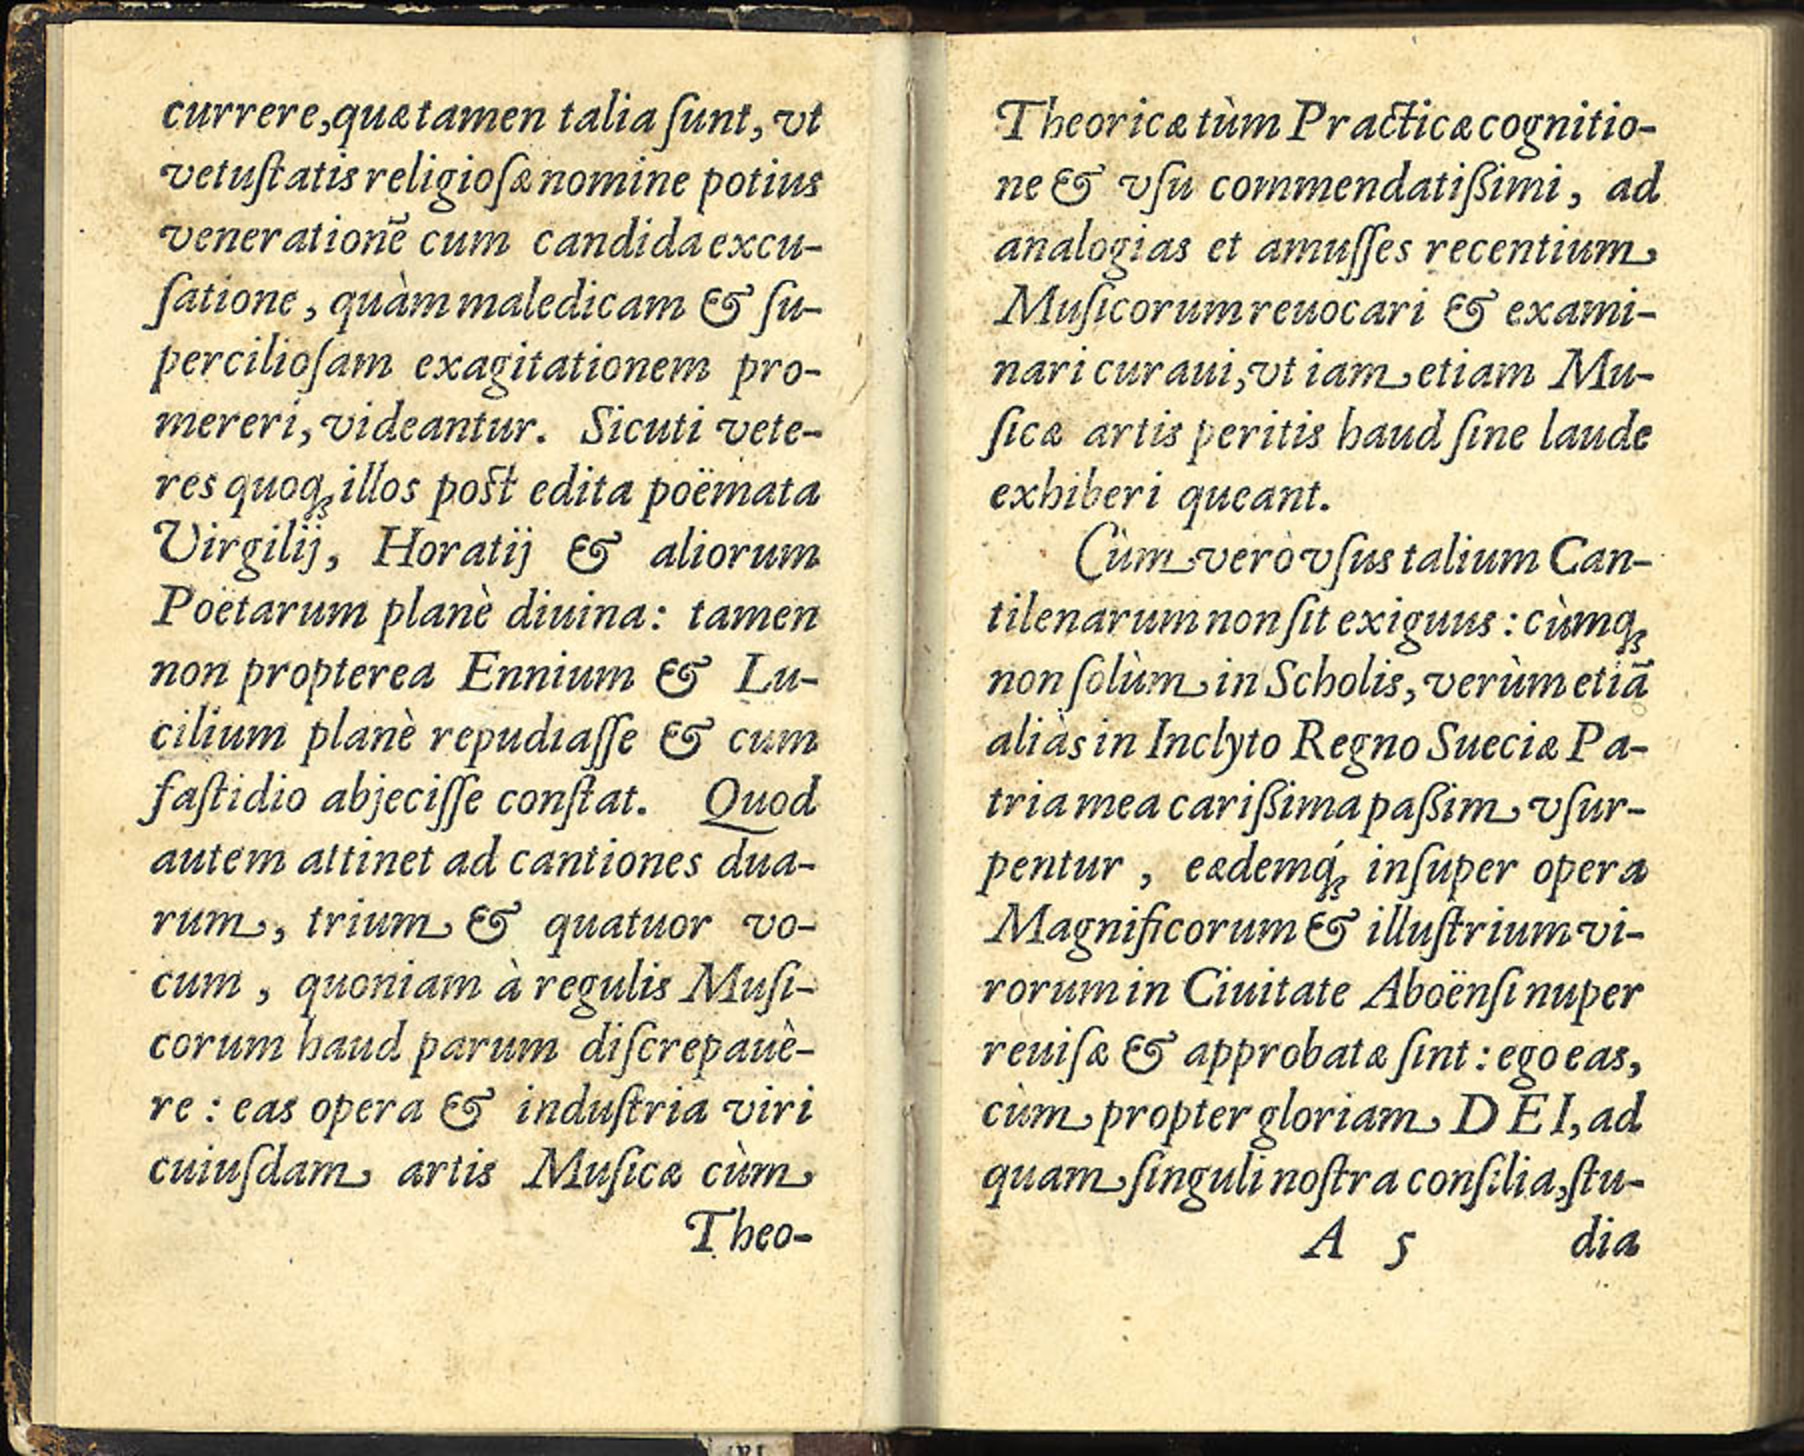 currere, quæ tamen talia ſunt, vt
vetuſtatis religioſæ nomine potius
venerationē cum candida excu-
ſatione, quàm maledicam & ſu-
percilioſam exagitationem pro-
mereri, videantur. Sicuti vete-
res quoq; illos poſt edita poëmata
Virgilij, Horatij & aliorum
Poëtarum planè diuina: tamen
non propterea Ennium & Lu-
cilium planè repudiaſſe & cum
faſtidio abjeciſſe conſtat. Quod
autem attinet ad cantiones dua-
rum, trium & quatuor vo-
cum, quoniam à regulis Muſi-
corum haud parum diſcrepauè-
re: eas opera & induſtria viri
cuiuſdam artis Muſicæ cùm
Theo-
Theoricæ tùm Practicæ cognitio-
ne & vſu commendatiſſimi, ad
analogias et amuſſes recentium
Muſicorum reuocari & exami-
nari curaui, vt iam etiam Mu-
ſicæ artis peritis haud ſine laude
exhiberi queant.
Cùm verò vſus talium Can-
tilenarum non ſit exiguus: cùmq;
non ſolùm in Scholis, verùm etiā
aliàs in Inclyto Regno Sueciæ Pa-
tria mea cariſſima paſſim vſur-
pentur, eædemq́; inſuper opera
Magnificorum & illuſtrium vi-
rorum in Ciuitate Aboënſi nuper
reuiſæ & approbatæ ſint: ego eas,
cùm propter gloriam DEI, ad
quam ſinguli noſtra conſilia, ſtu-
A 5 dia